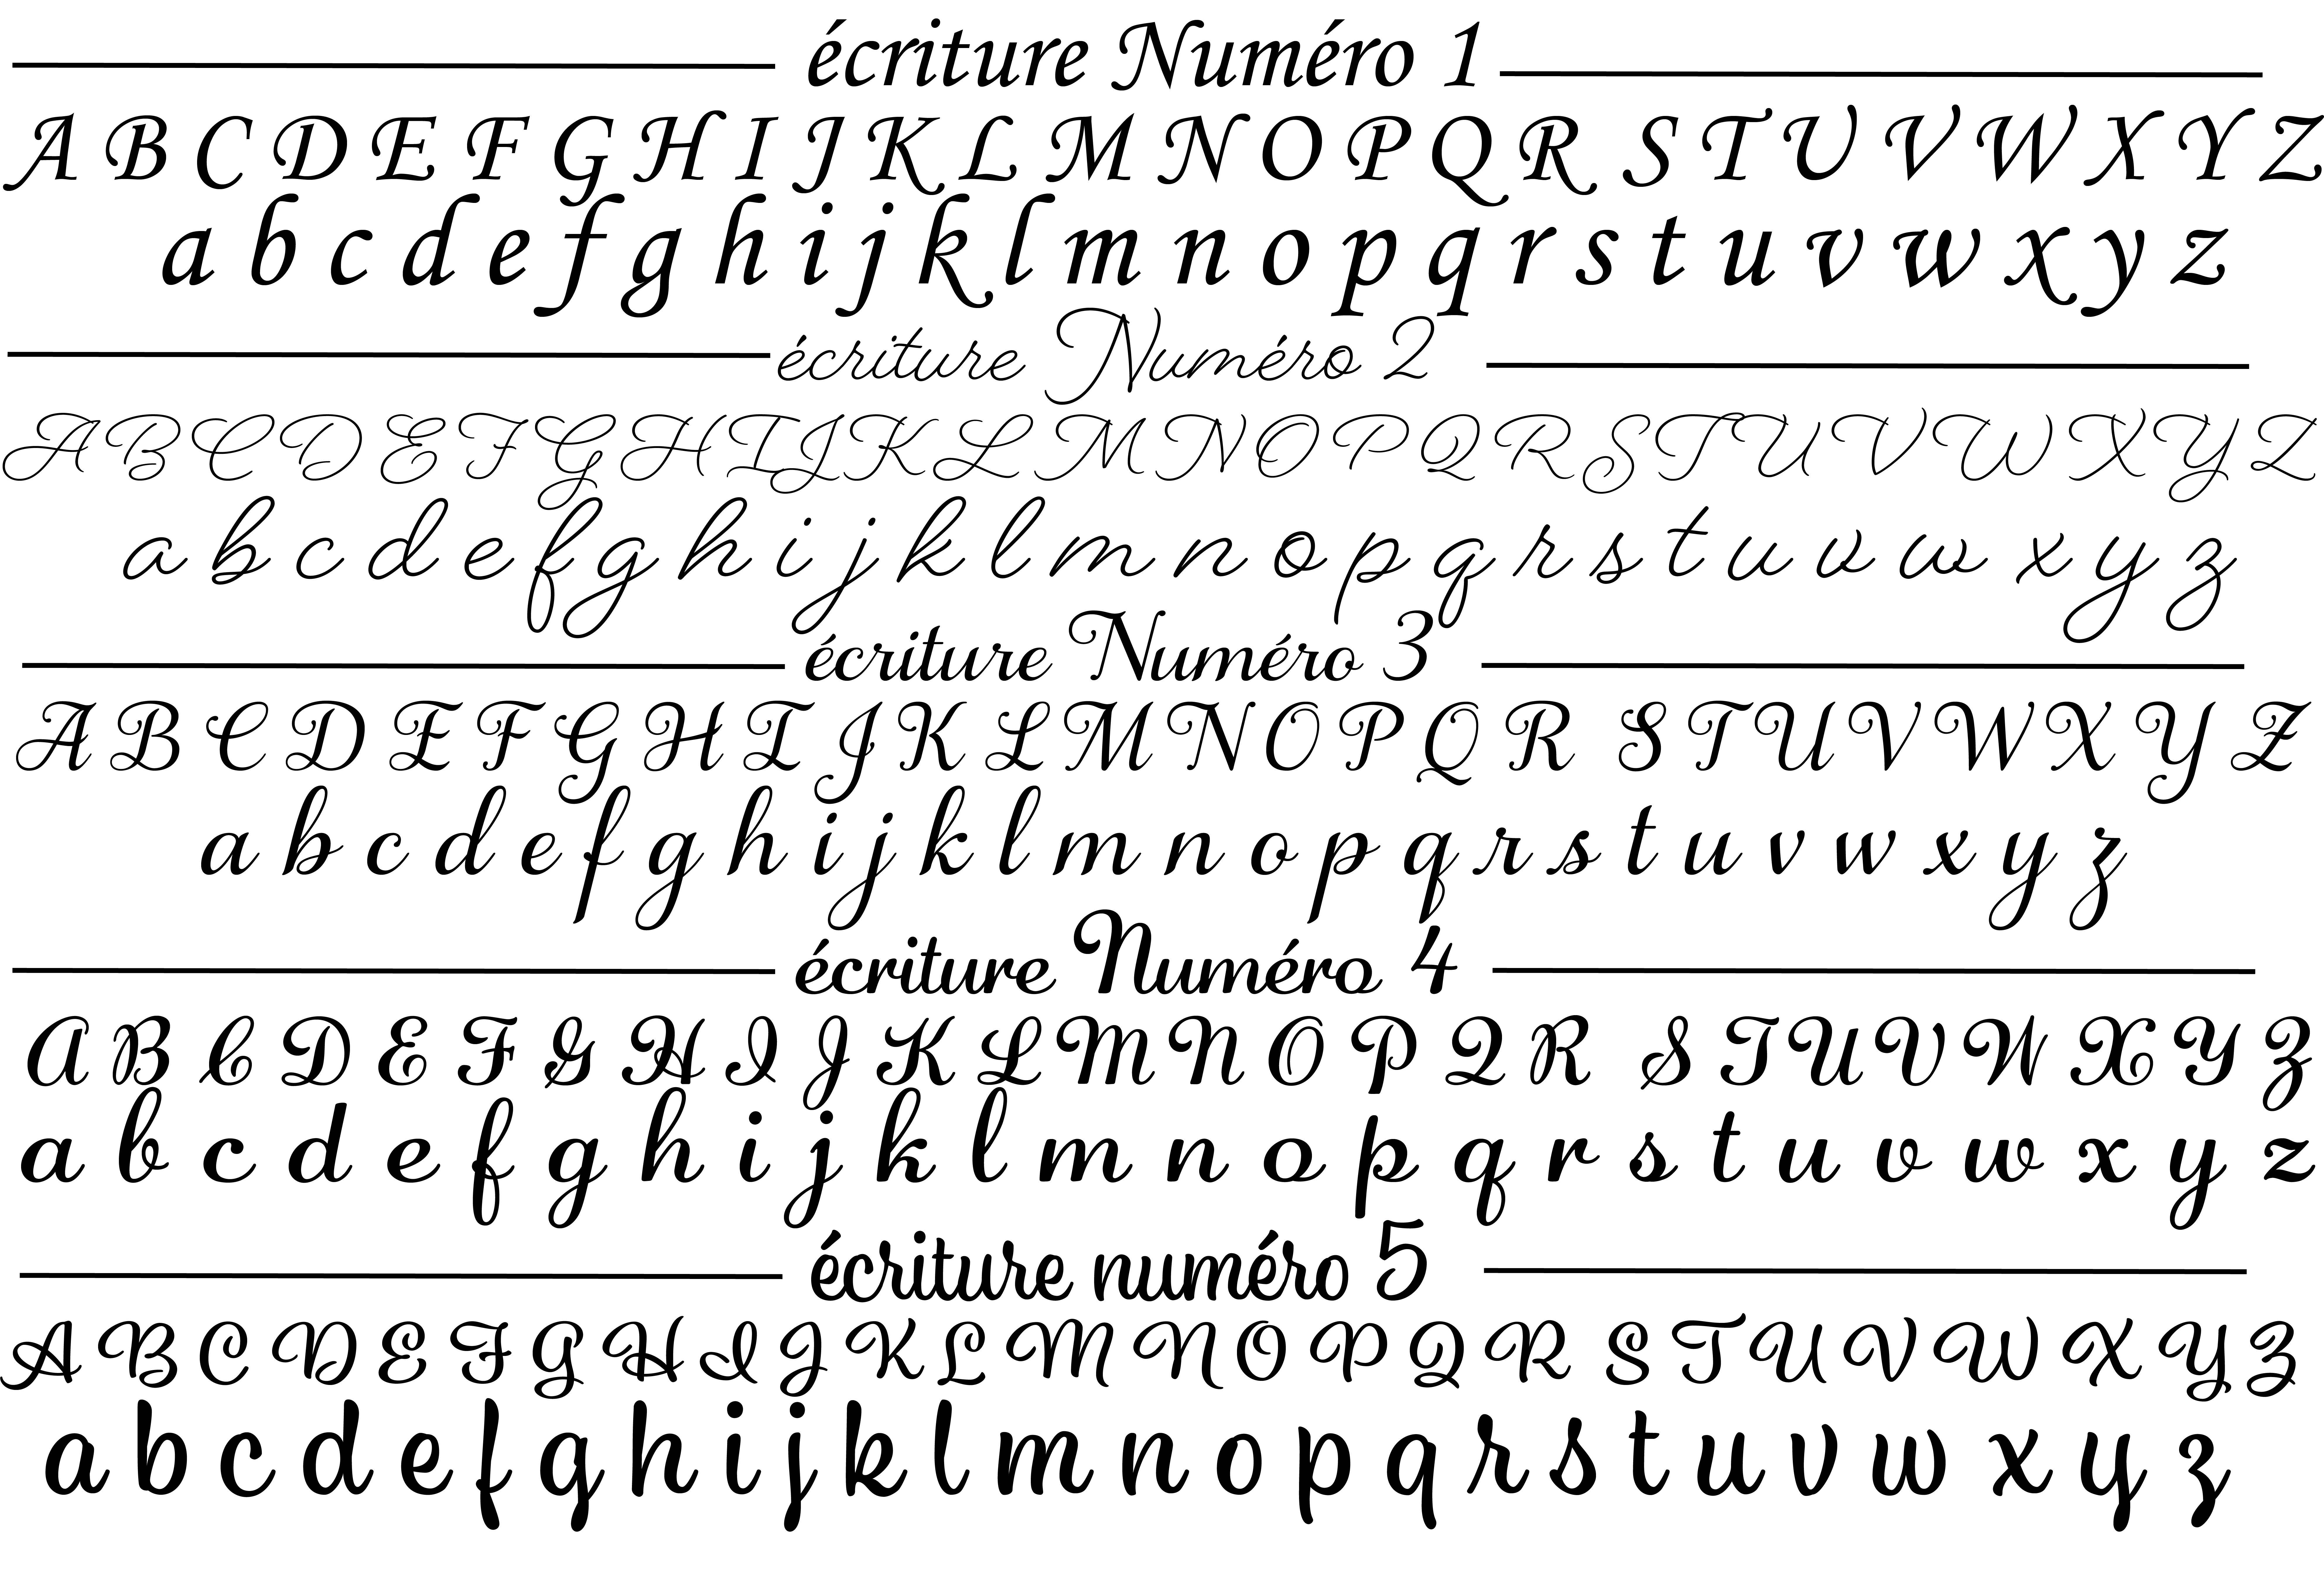 écriture Numéro 1
A B C D E F G H I J K L M N O P Q R S T U V W X Y Z
a b c d e f g h i j k l m n o p q r s t u v w x y z
écriture Numéro 2
A B C D E F G H I J K L M N O P Q R S T U V W X Y Z
a b c d e f g h i j k l m n o p q r s t u v w x y z
écriture Numéro 3
A B C D E F G H I J K L M N O P Q R S T U V W X Y Z
a b c d e f g h i j k l m n o p q r s t u v w x y z
écriture Numéro 4
A B C D E F G H I J K L M N O P Q R S T U V W X Y Z
a b c d e f g h i j k l m n o p q r s t u v w x y z
écriture numéro 5
A B C D E F G H I J K L M N O P Q R S T U V W X Y Z
a b c d e f g h i j k l m n o p q r s t u v w x y z